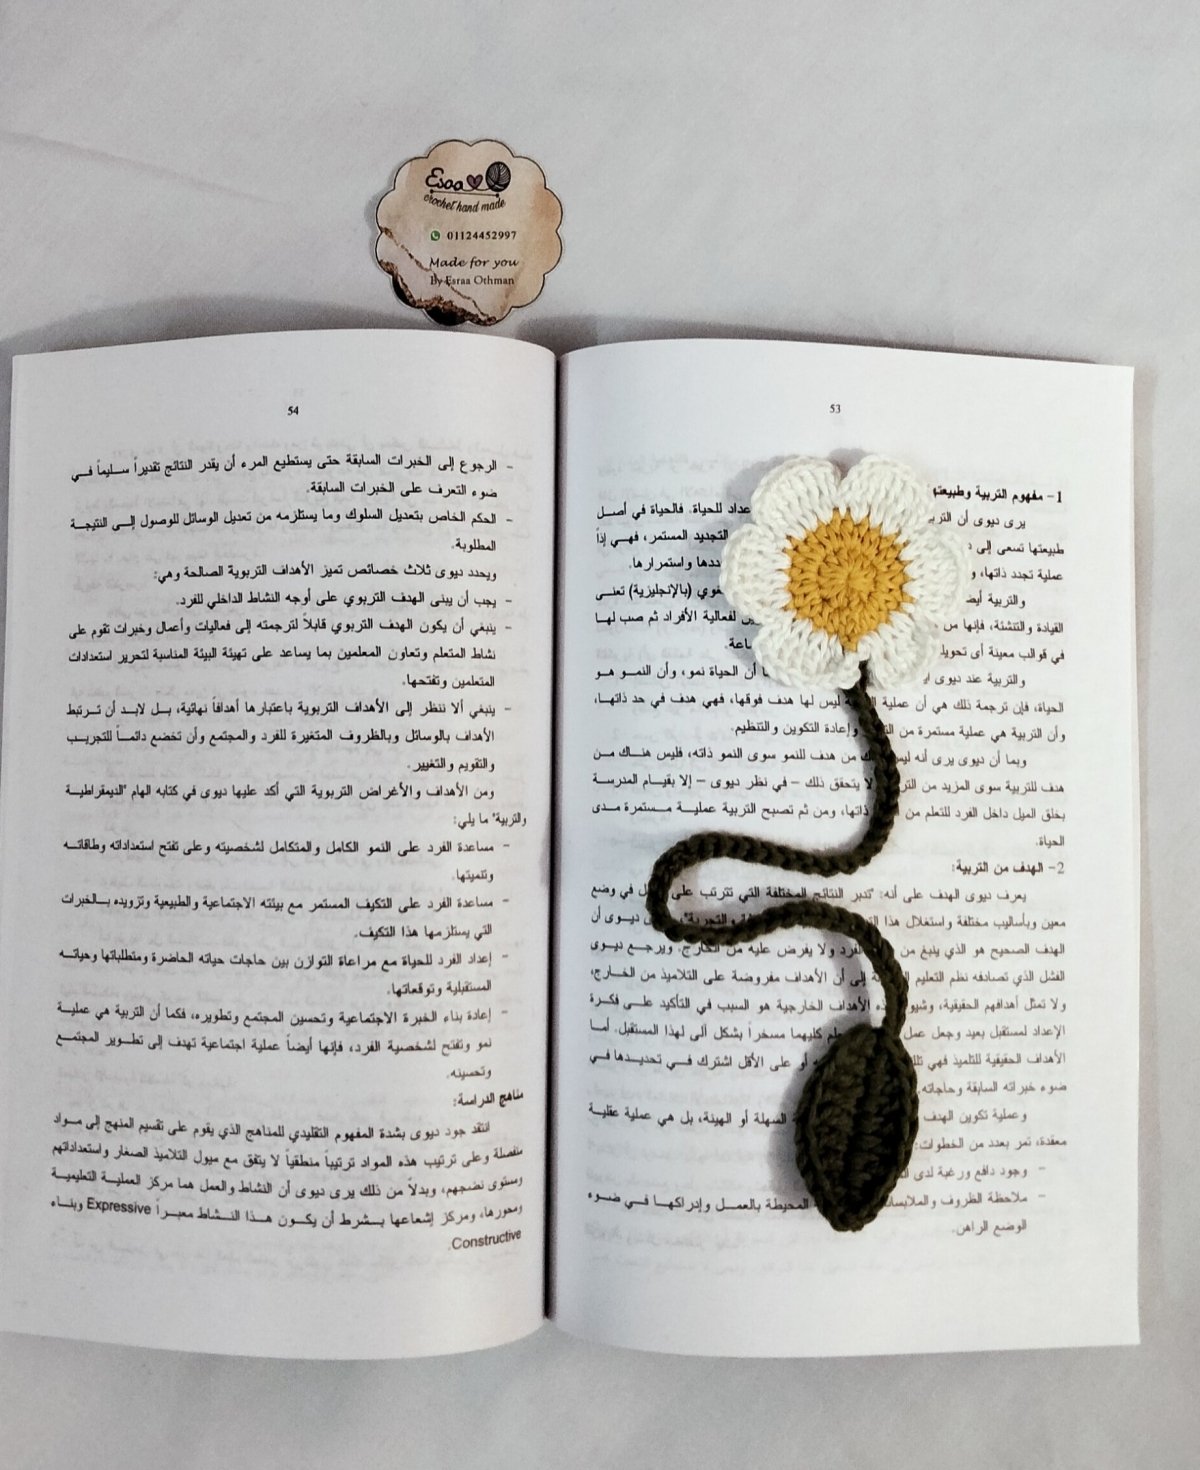 Esoo
crochet hand made
01124452997
Made for you
By Esraa Othman
53
1- مفهوم التربية وطبيعتها
يرى ديوى أن التربية عداد للحياة. فالحياة في أصل
طبيعتها تسعى إلى التجديد المستمر، فهي إذاً
عملية تجدد ذاتها، ددها واستمرارها.
والتربية أيض غوي (بالإنجليزية) تعنى
القيادة والتنشئة، فإنها من لفعالية الأفراد ثم صب لها
في قوالب معينة أى تحويل
والتربية عند ديوى أن الحياة نمو، وأن النمو هو
الحياة، فإن ترجمة ذلك هي أن عملية ليس لها هدف فوقها، فهي هدف في حد ذاتها،
وأن التربية هي عملية مستمرة من وإعادة التكوين والتنظيم.
وبما أن ديوى يرى أنه ليس من هدف للنمو سوى النمو ذاته، فليس هناك من
هدف للتربية سوى المزيد من لا يتحقق ذلك – في نظر ديوى – إلا بقيام المدرسة
بخلق الميل داخل الفرد للتعلم من ذاتها، ومن ثم تصبح التربية عملية مستمرة مدى
الحياة.
2- الهدف من التربية:
يعرف ديوى الهدف على أنه: "تدبر النتائج المختلفة التي تترتب على في وضع
معين وبأساليب مختلفة واستغلال هذا والتجربة" ديوى أن
الهدف الصحيح هو الذي ينبغ من الفرد ولا يفرض عليه من الخارج. ويرجع ديوى
الفشل الذي تصادفه نظم التعليم إلى أن الأهداف مفروضة على التلاميذ من الخارج،
ولا تمثل أهدافهم الحقيقية، الأهداف الخارجية هو السبب في التأكيد على فكرة
الإعداد لمستقبل بعيد وجعل عمل كليهما مسخراً بشكل آلى لهذا المستقبل. أما
الأهداف الحقيقية للتلميذ فهي أو على الأقل اشترك في تحديدها في
ضوء خبراته السابقة وحاجاته.
وعملية تكوين الهدف السهلة أو الهينة، بل هي عملية عقلية
معقدة، تمر بعدد من الخطوات:
- وجود دافع ورغبة لدى
- ملاحظة الظروف والملابسات المحيطة بالعمل وإدراكها في ضوء
الوضع الراهن.
54
- الرجوع إلى الخبرات السابقة حتى يستطيع المرء أن يقدر النتائج تقديراً سليماً في
ضوء التعرف على الخبرات السابقة.
- الحكم الخاص بتعديل السلوك وما يستلزمه من تعديل الوسائل للوصول إلى النتيجة
المطلوبة.
ويحدد ديوى ثلاث خصائص تميز الأهداف التربوية الصالحة وهي:
- يجب أن يبنى الهدف التربوي على أوجه النشاط الداخلي للفرد.
- ينبغي أن يكون الهدف التربوي قابلاً لترجمته إلى فعاليات وأعمال وخبرات تقوم على
نشاط المتعلم وتعاون المعلمين بما يساعد على تهيئة البيئة المناسبة لتحرير استعدادات
المتعلمين وتفتحها.
- ينبغي ألا ننظر إلى الأهداف التربوية باعتبارها أهدافاً نهائية، بل لابد أن ترتبط
الأهداف بالوسائل وبالظروف المتغيرة للفرد والمجتمع وأن تخضع دائماً للتجريب
والتقويم والتغيير.
ومن الأهداف والأغراض التربوية التي أكد عليها ديوى في كتابه الهام "الديمقراطية
والتربية" ما يلي:
- مساعدة الفرد على النمو الكامل والمتكامل لشخصيته وعلى تفتح استعداداته وطاقاته
وتنميتها.
- مساعدة الفرد على التكيف المستمر مع بيئته الاجتماعية والطبيعية وتزويده بالخبرات
التي يستلزمها هذا التكيف.
- إعداد الفرد للحياة مع مراعاة التوازن بين حاجات حياته الحاضرة ومتطلباتها وحياته
المستقبلية وتوقعاتها.
- إعادة بناء الخبرة الاجتماعية وتحسين المجتمع وتطويره، فكما أن التربية هي عملية
نمو وتفتح لشخصية الفرد، فإنها أيضاً عملية اجتماعية تهدف إلى تطوير المجتمع
وتحسينه.
مناهج الدراسة:
انتقد جود ديوى بشدة المفهوم التقليدي للمناهج الذي يقوم على تقسيم المنهج إلى مواد
منفصلة وعلى ترتيب هذه المواد ترتيباً منطقياً لا يتفق مع ميول التلاميذ الصغار واستعداداتهم
ومستوى نضجهم، وبدلاً من ذلك يرى ديوى أن النشاط والعمل هما مركز العملية التعليمية
ومحورها، ومركز إشعاعها بشرط أن يكون هذا النشاط معبراً Expressive وبناء
Constructive.